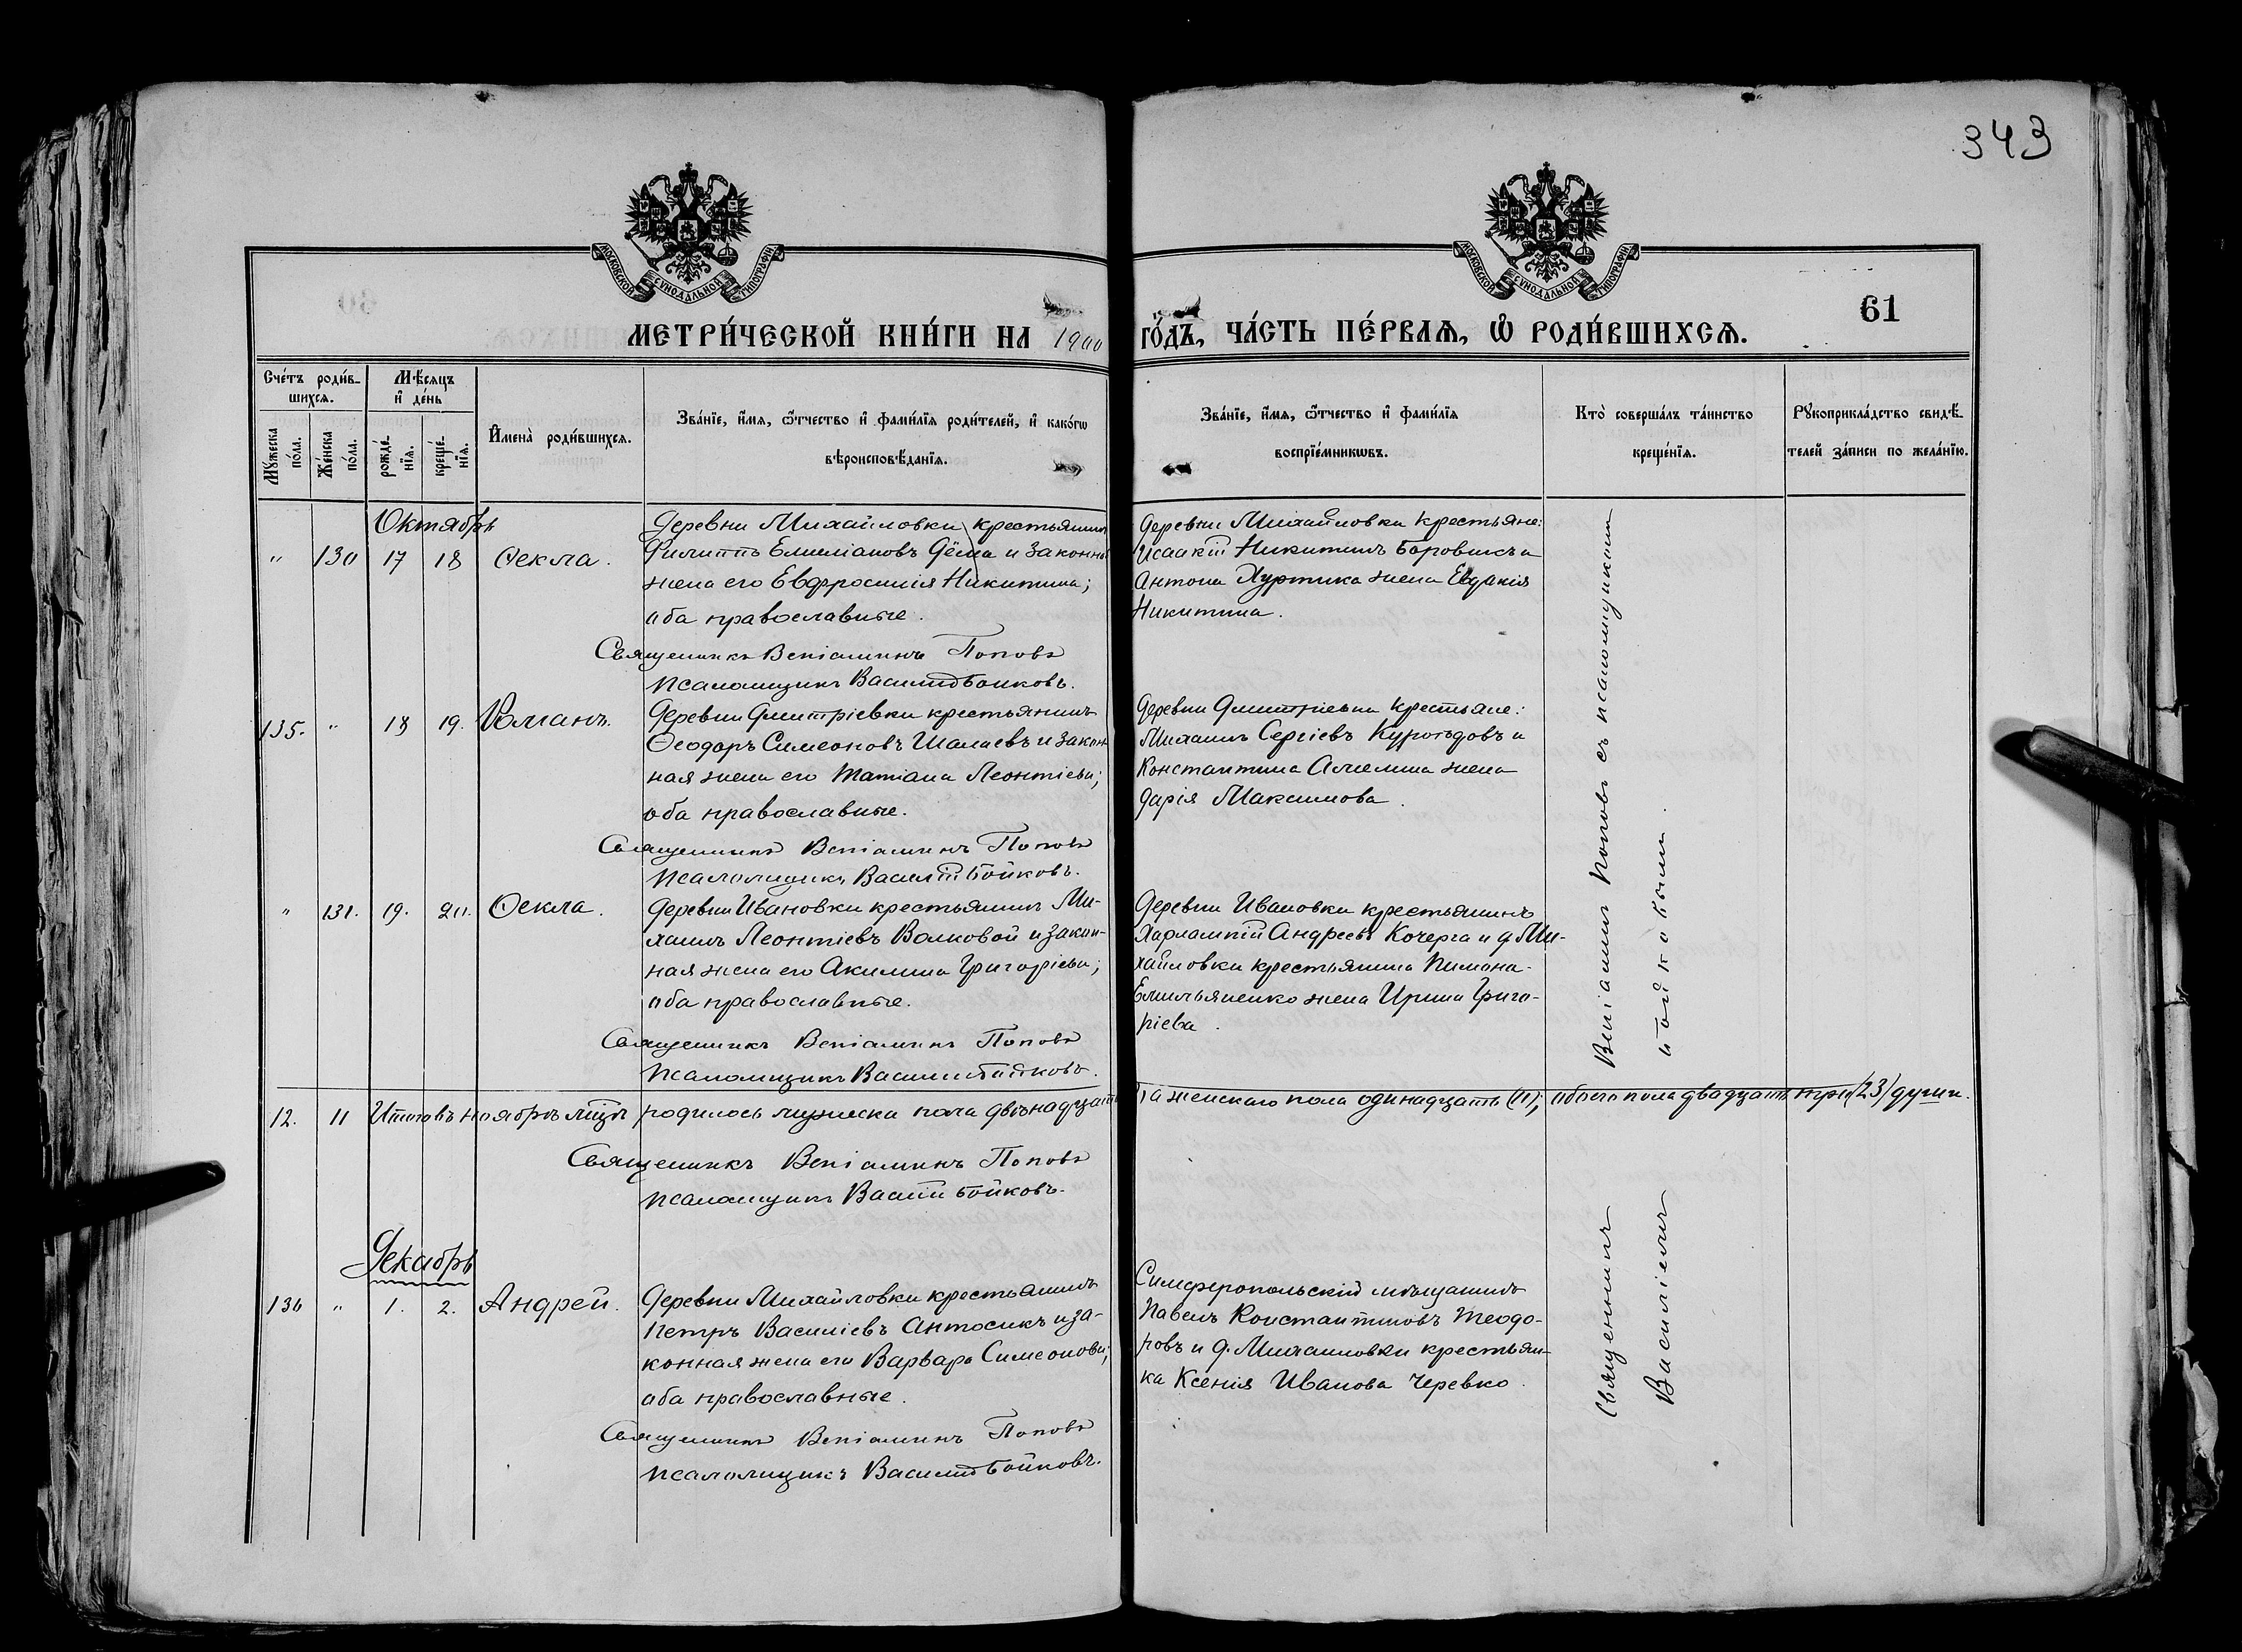 343
МОСКОВСКОЙ СѴНОДАЛЬНОЙ ТИПОГРАФІИ
МОСКОВСКОЙ СѴНОДАЛЬНОЙ ТИПОГРАФІИ
61
МЕТРИ́ЧЕСКОЙ КНИ́ГИ НА 1900 ГО́ДЪ, ЧА́СТЬ ПЕ́РВАѦ, Ѡ РОДИ́ВШИХСѦ.
Сче́тъ роди́в-
шихсѧ.
Мѣ́сѧцъ
и҆ де́нь
Мꙋ́жеска по́ла.
Же́нска по́ла.
рожде́-
нїѧ.
креще́-
нїѧ.
И҆мена̀ роди́вшихсѧ.
Зва́нїе, и҆́мѧ, ѻ҆́тчество и҆ фами́лїѧ роди́телей, и҆ како́гѡ
вѣроисповѣ́данїѧ.
Зва́нїе, и҆́мѧ, ѻ҆́тчество и҆ фами́лїѧ
воспрїе́мникѡвъ.
Кто̀ соверша́лъ та́инство
креще́нїѧ.
Рꙋкоприкла́дство свидѣ́-
телей за́писи по жела́нїю.
Октябрь
" 130 17 18 Ѳекла.
Деревни Михайловки крестьянинъ
Филиппъ Емиліановъ Дёма и законная
жена его Евфросинія Никитина;
оба православные.
Священникъ Веніаминъ Поповъ
Псаломщикъ Василій Бойковъ.
Деревни Михайловки крестьяне:
Исаакій Никитинъ Боровикъ и
Антона Хуртика жена Евдокія
Никитина.
135. " 18 19. Романъ.
Деревни Дмитріевки крестьянинъ
Ѳеодоръ Симеоновъ Шалаевъ и закон-
ная жена его Татіана Леонтіева;
оба православные.
Священникъ Веніаминъ Поповъ
Псаломщикъ Василій Бойковъ.
Деревни Дмитріевки крестьяне:
Михаилъ Сергіевъ Куроѣдовъ и
Константина жена
Дарія Максимова.
" 131. 19. 20. Ѳекла.
Деревни Ивановки крестьянинъ Ми-
хаилъ Леонтіевъ Волковой и закон-
ная жена его Акилина Григоріева;
оба православные.
Священникъ Веніаминъ Поповъ
Псаломщикъ Василій Бойковъ.
Деревни Ивановки крестьянинъ
Харлампій Андреевъ Кочерга и д. Ми-
хайловки крестьянина Пимона
Емильяненко жена Ирина Григо-
ріева.
12. 11 Итого въ ноябрѣ мцѣ родилось мужеска пола двѣнадцать а женскаго пола одинадцать (11); обоего пола двадцать три (23) души.
Священникъ Веніаминъ Поповъ
Псаломщикъ Василій Бойковъ.
Декабрь
136 " 1. 2. Андрей.
Деревни Михайловки крестьянинъ
Петръ Василіевъ Антосикъ и за-
конная жена его Варвара Симеонова;
оба православные.
Священникъ Веніаминъ Поповъ
Псаломщикъ Василій Бойковъ.
Симферопольскій мѣщанинъ
Павелъ Константиновъ Теодо-
ровъ и д. Михайловки крестьян-
ка Ксенія Иванова Черевко.
Священникъ Веніаминъ Поповъ съ псаломщикомъ
Василіемъ Бойковымъ.